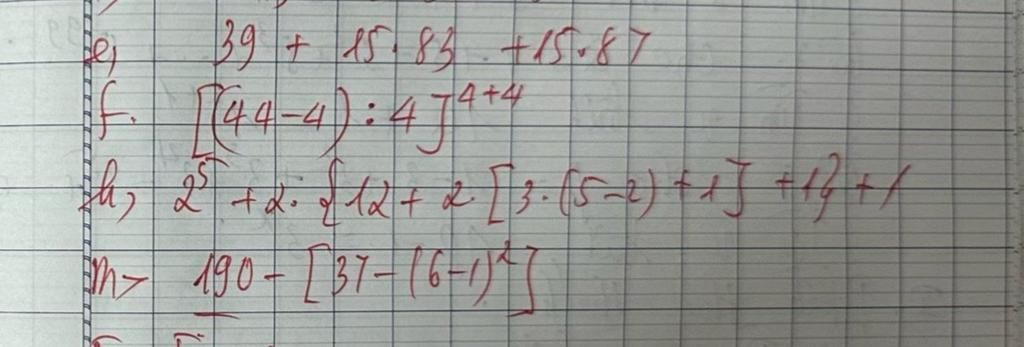 e, 39 + 15.83 +15.87
f. [(44-4):4]^4+4
h, 2^5 +2.{12+2.[3.(5-2)+1]+1}+1
m> 190-[37-(6-1)^2]